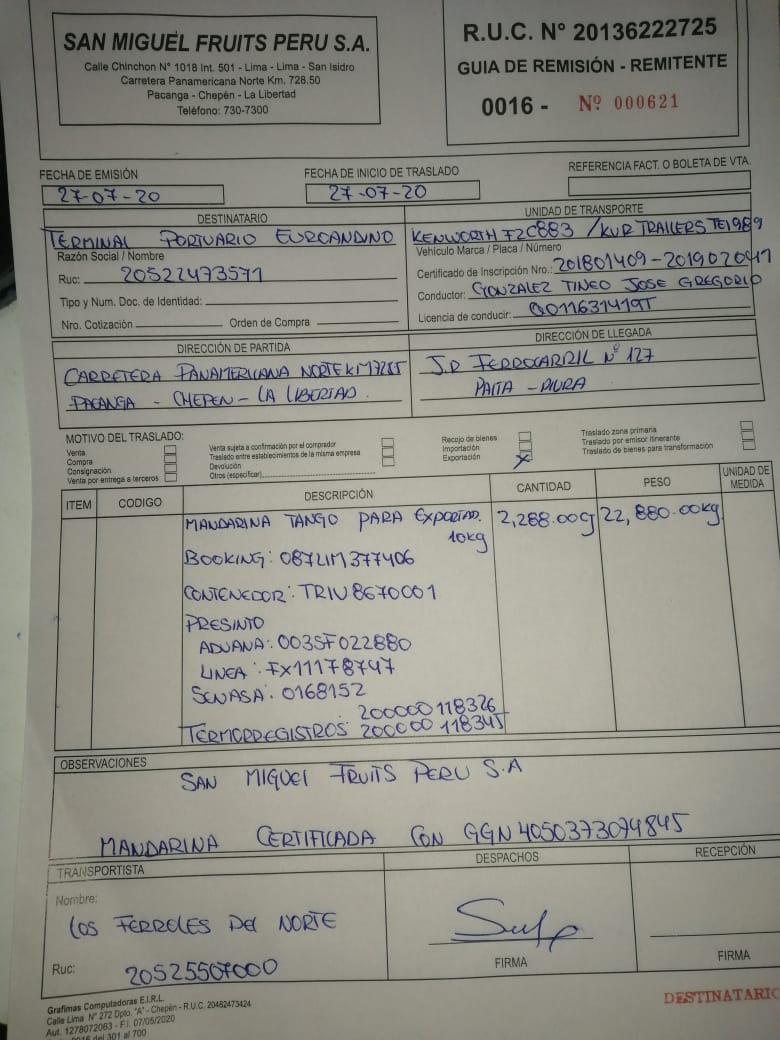 SAN MIGUEL FRUITS PERU S.A.
Calle Chinchon N° 1018 Int. 501 - Lima - Lima - San Isidro
Carretera Panamericana Norte Km. 728.50
Pacanga - Chepén - La Libertad
Teléfono: 730-7300
R.U.C. N° 20136222725
GUIA DE REMISIÓN - REMITENTE
0016 - Nº 000621
FECHA DE EMISIÓN
27-07-20
FECHA DE INICIO DE TRASLADO
27-07-20
REFERENCIA FACT. O BOLETA DE VTA.
DESTINATARIO
TERMINAL PORTUARIO EUROANDINO
Razón Social / Nombre
Ruc: 20522473571
Tipo y Num. Doc. de Identidad:
Nro. Cotización Orden de Compra
UNIDAD DE TRANSPORTE
KENWORTH F2C883 / KUR TRAILERS TE1989
Vehículo Marca / Placa / Número
Certificado de Inscripción Nro.: 201801409-2019020947
Conductor: GONZALEZ TINEO JOSE GREGORIO
Licencia de conducir: Q011631419T
DIRECCIÓN DE PARTIDA
CARRETERA PANAMERICANA NORTE KM 7285
PACANGA - CHEPEN - LA LIBERTAD.
DIRECCIÓN DE LLEGADA
J.R FERROCARRIL N° 127
PAITA - PIURA
MOTIVO DEL TRASLADO:
Venta
Compra
Consignación
Venta por entrega a terceros
Venta sujeta a confirmación por el comprador
Traslado entre establecimientos de la misma empresa
Devolución
Otros (especificar)
Recojo de bienes
Importación
Exportación X
Traslado zona primaria
Traslado por emisor itinerante
Traslado de bienes para transformación
ITEM CODIGO DESCRIPCIÓN CANTIDAD PESO UNIDAD DE MEDIDA
MANDARINA TANGO PARA EXPORTAD. 2,288.00 22,880.00kg
10kg
BOOKING: 087LIM377406
CONTENEDOR: TRIU8670001
PRESINTO
ADUANA: 003SF022880
LINEA: FX11178747
SENASA: 0168152
: 200000118326
TERMORREGISTROS 200000118345
OBSERVACIONES
SAN MIGUEL FRUITS PERU S.A
MANDARINA CERTIFICADA CON GGN 4050373074845
TRANSPORTISTA
Nombre:
LOS FERROLES DEL NORTE
Ruc: 20525507000
DESPACHOS
FIRMA
RECEPCIÓN
FIRMA
Grafimas Computadoras E.I.R.L.
Calle Lima N° 272 Dpto. "A" - Chepén - R.U.C. 20482473424
Aut. 1278072063 - F.I. 07/05/2020
del 301 al 700
DESTINATARIO